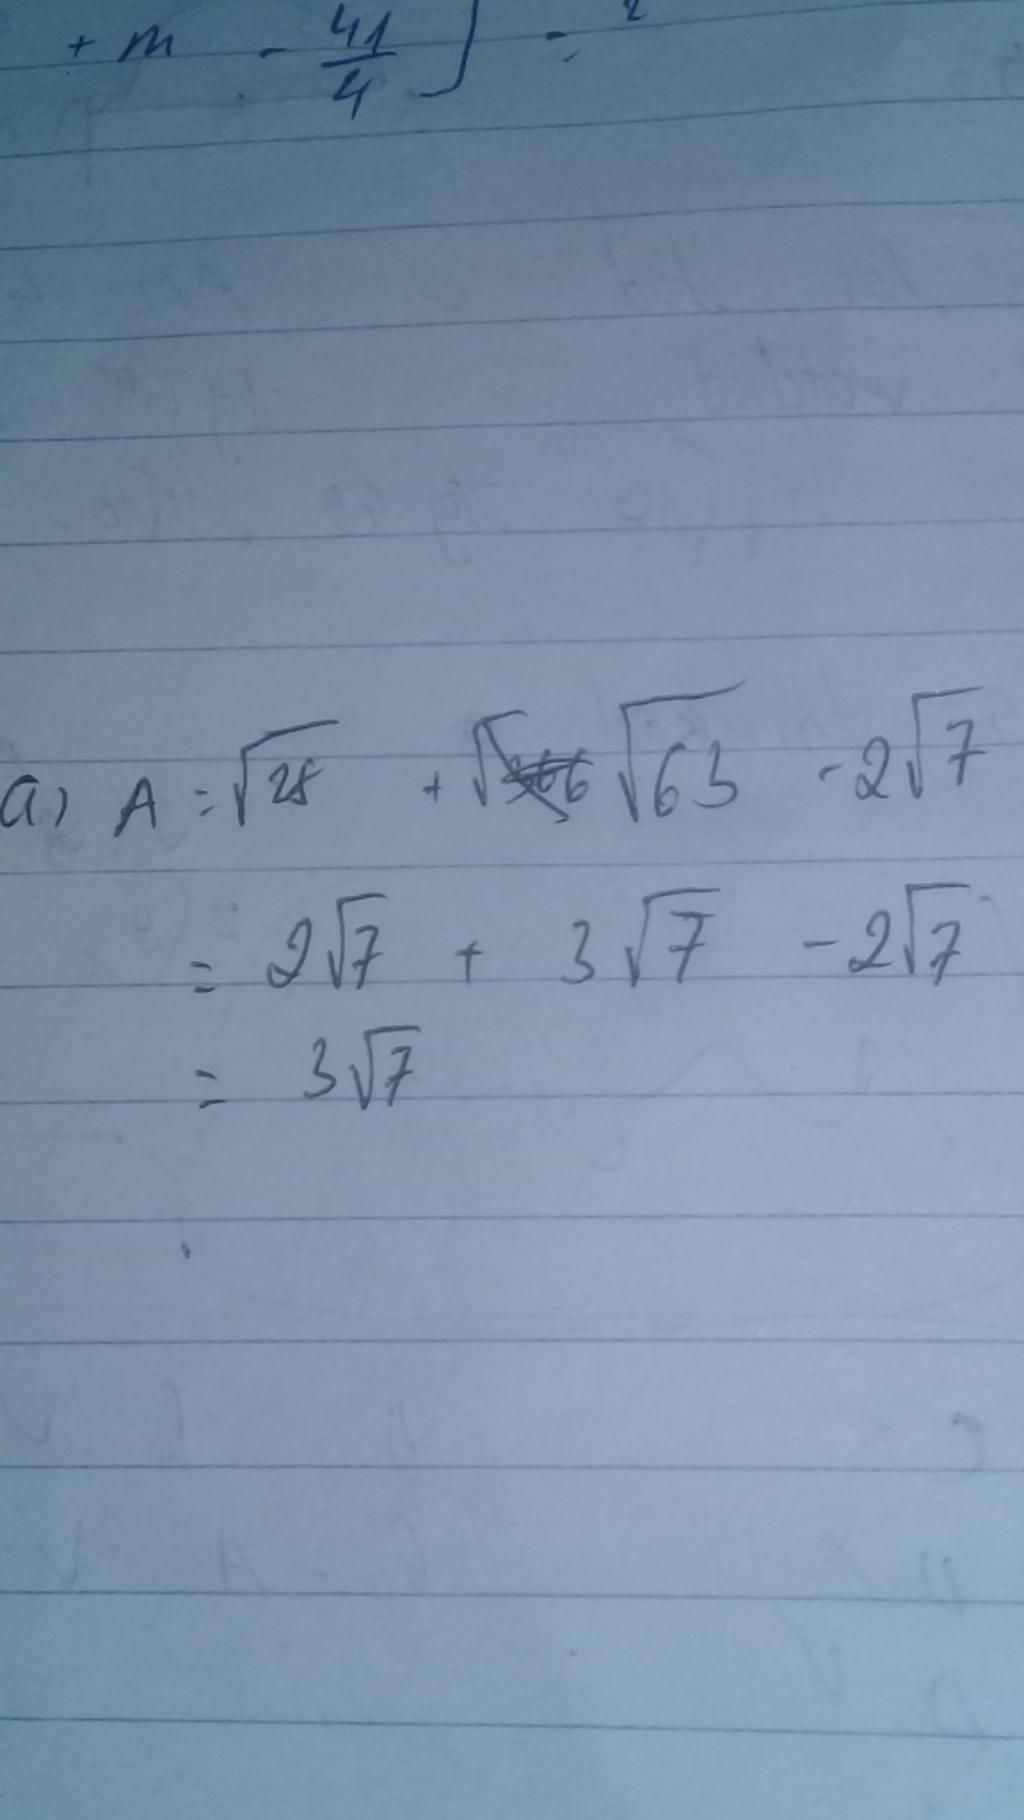 + m - 41/4 ] =
a) A = √28 + √63 - 2√7
= 2√7 + 3√7 - 2√7
= 3√7